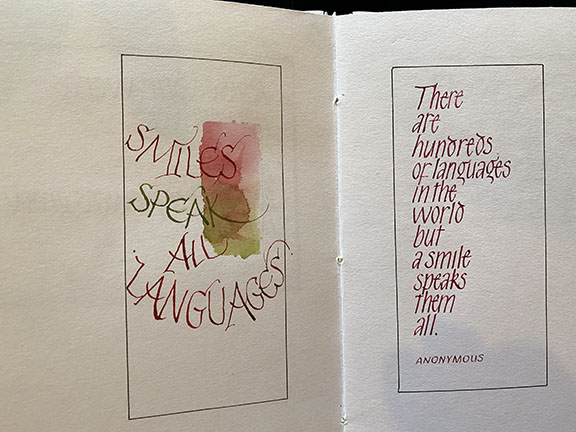 SMILES
SPEAK
ALL
LANGUAGES
There
are
hundreds
of languages
in the
world
but
a smile
speaks
them
all.
ANONYMOUS